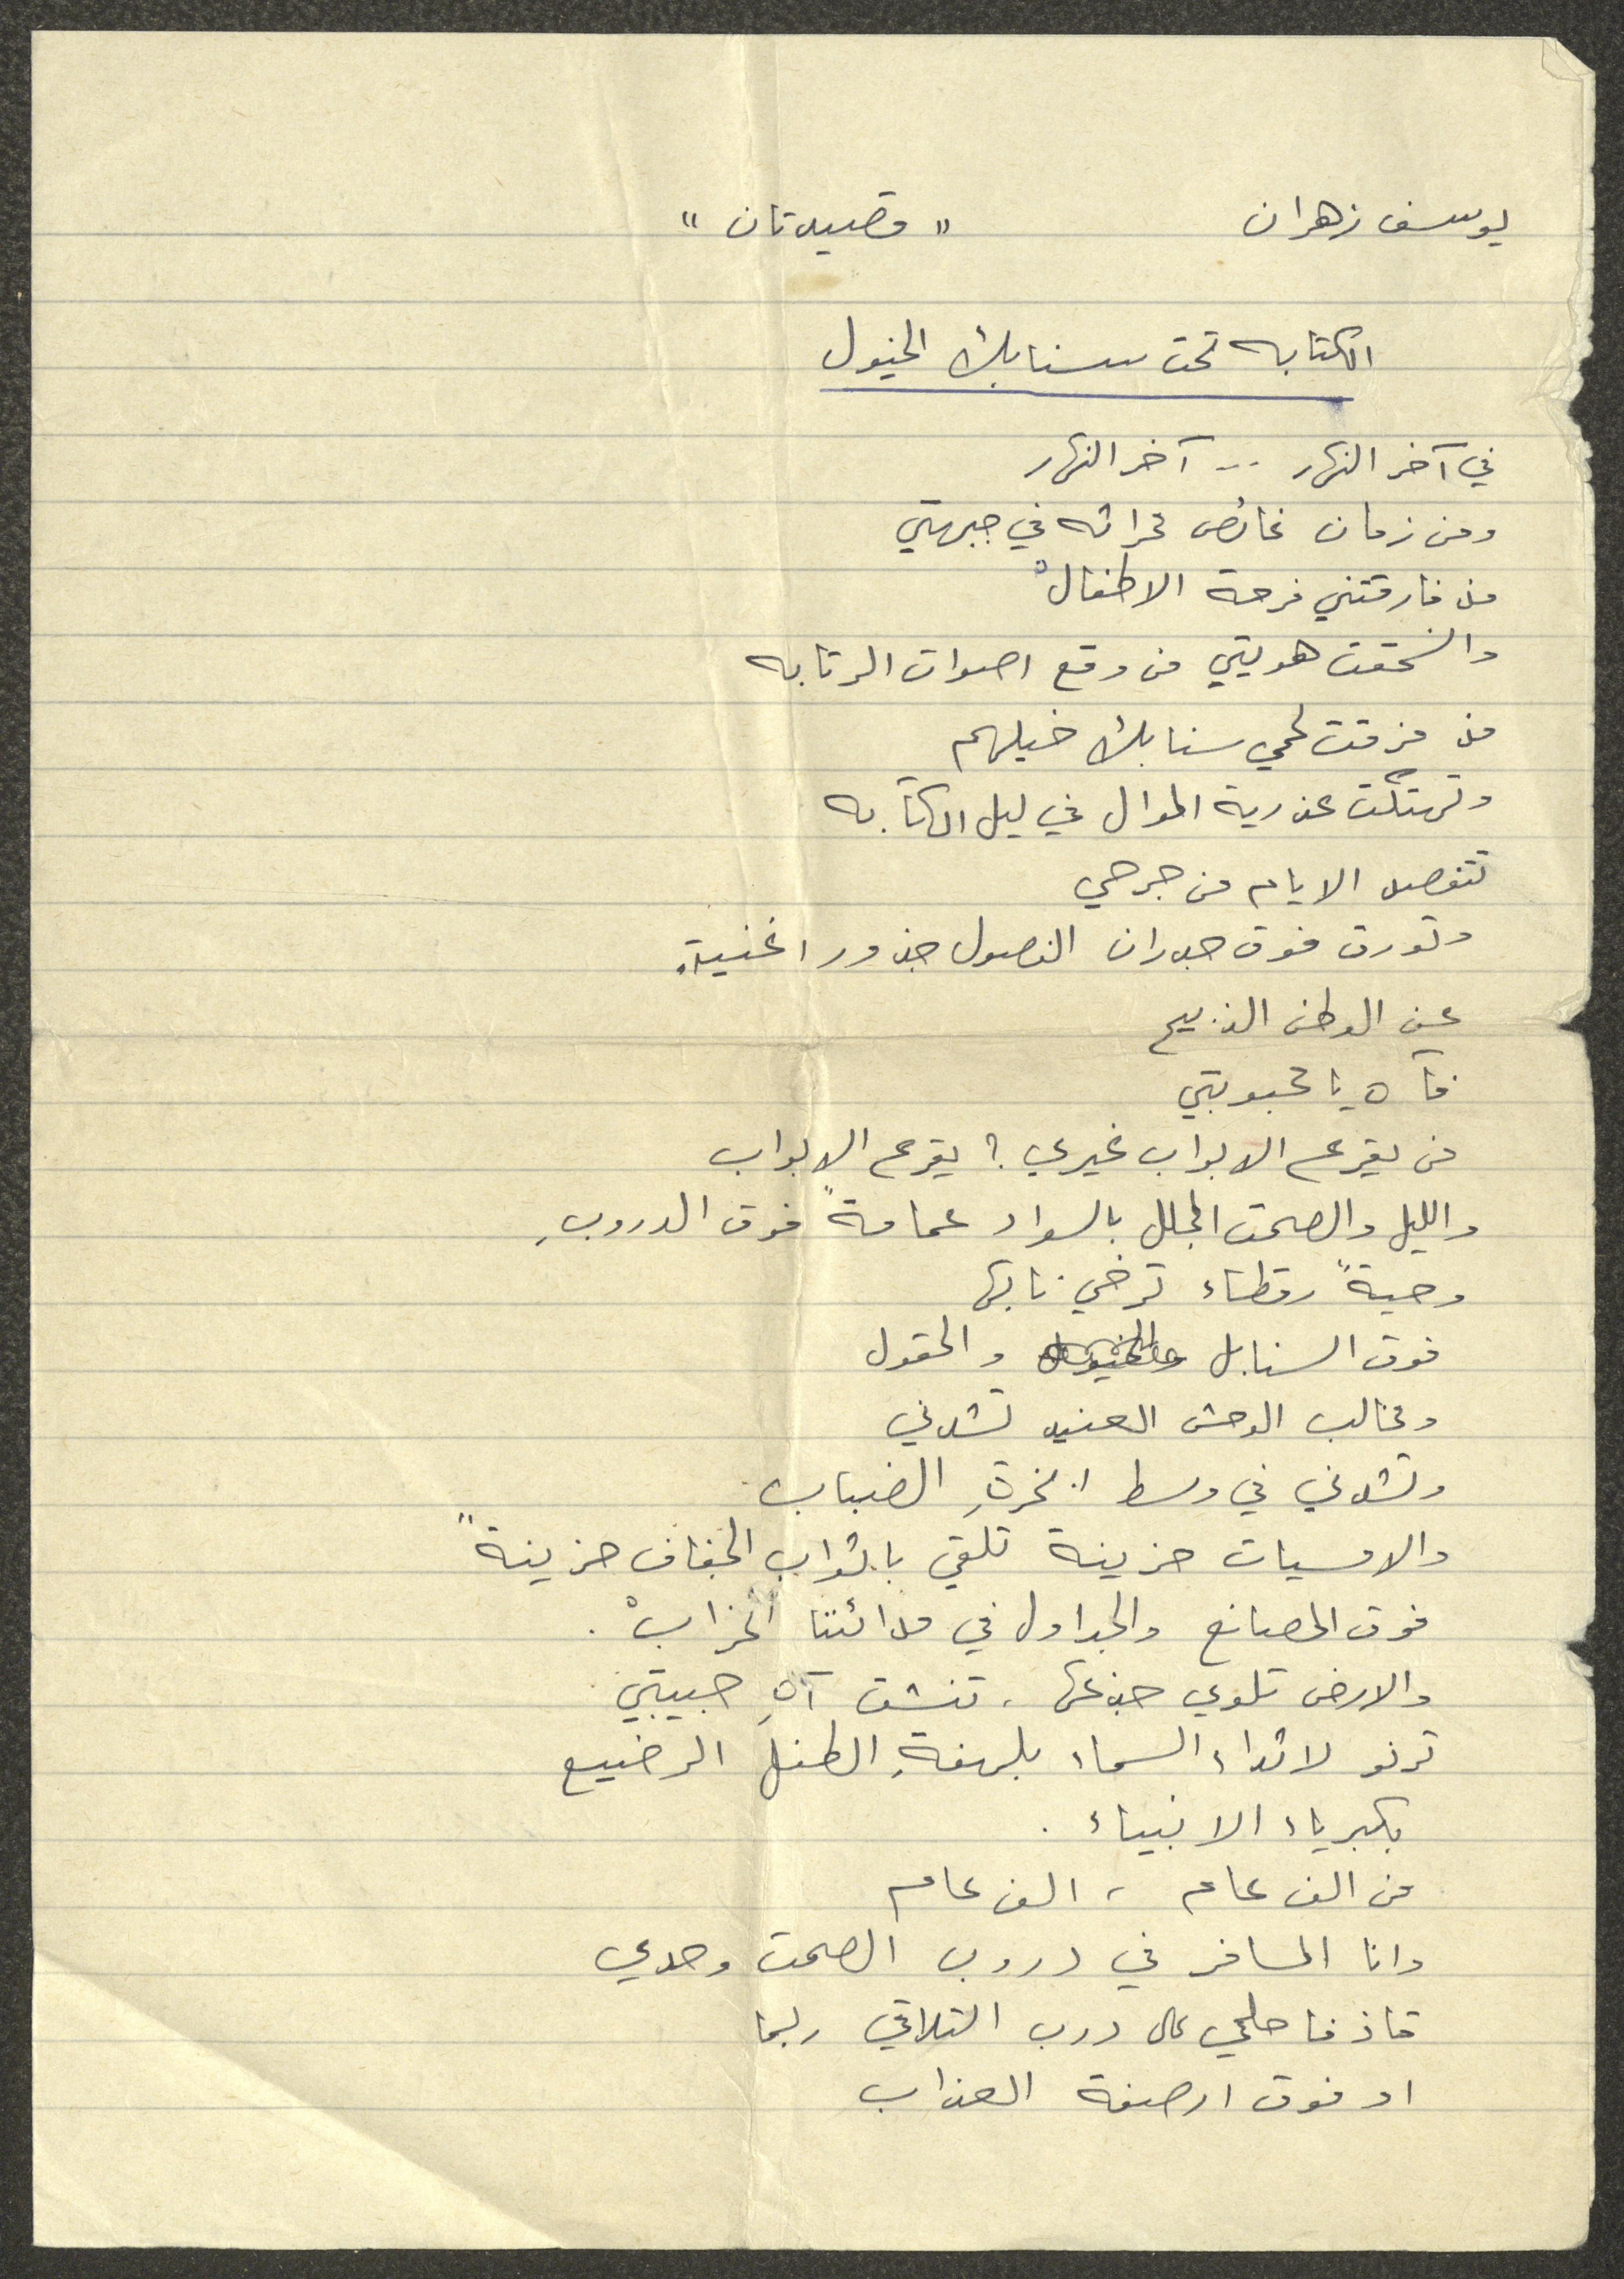 يوسف زهران
" قصيدتان "
الكتابه تحت سنابك الخيول
في آخر النهار .. آخر النهار
ومن زمان غائص محراثه في جبهتي
مذ فارقتني فرحة الاطفالْ
وانسحقت هويتي من وقع اصوات الرتابه
مذ مزقت لحمي سنابك خيلهم
وتهتكت عذرية الموال في ليل الكآبه
تتفصد الايام من جرحي
وتورق فوق جدران الفصول جذور اغنيةٍ
عن الوطن الذبيح
فآه يا محبوبتي
من يقرع الابواب غيري ؟ يقرع الابواب
والليل والصمت المجلل بالسواد عمامةً فوق الدروبِ
وحيةً رقطاء ترخي نابها
فوق السنابل والحقول
ومخالب الوحش العنيد تشدني
وتشدني في وسط ابخرةِ الضباب
والامسيات حزينة تلقي باثواب الجفاف حزينةً
فوق المصانع والجداول في مدائننا الخرابْ .
والارض تلوي جذعها ، تنشق آهِ حبيبتي
ترنو لاثداء السماء بلهفةِ الطفل الرضيع
بكبرياء الانبياء .
من الف عام ، الف عام
وانا المسافر في دروب الصمت وحدي
قاذفا حلمي على درب التلاقي ربما
او فوق ارصفة العذاب